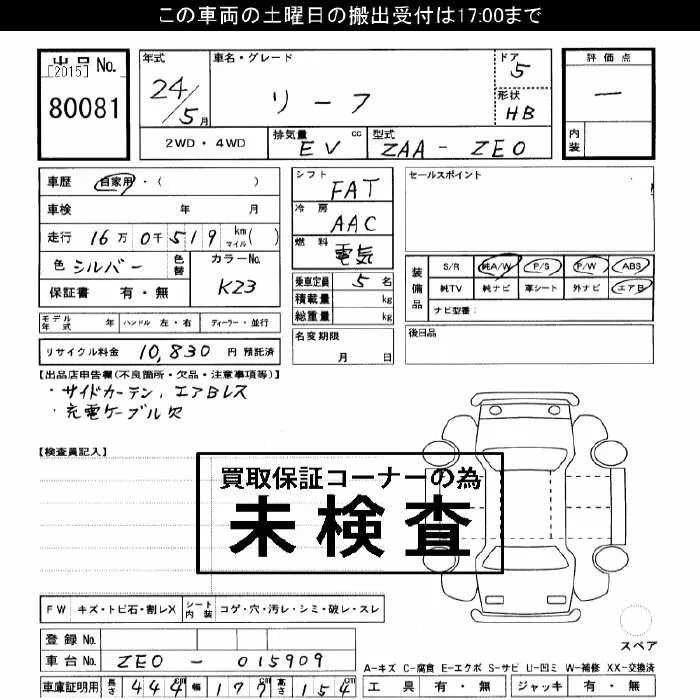 この車両の土曜日の搬出受付は17:00まで
出品 No.
[2015]
80081
年式
24/5月
車名・グレード
リーフ
ドア
5
形状
HB
評価点
ー
内装
2WD・4WD
排気量 cc
EV
型式
ZAA-ZEO
車歴 自家用・( )
車検 年 月
走行 16万0千519 km マイル( )
色 シルバー 色替
カラーNo.
K23
保証書 有・無
シフト
FAT
冷房
AAC
燃料
電気
乗車定員 5 名
積載量 kg
総重量 kg
名変期限
月 日
セールスポイント
装備品
S/R 純A/W P/S P/W ABS
純TV 純ナビ 革シート 外ナビ エアB
ナビ型番:
後日品
モデル年式 年 ハンドル 左・右 ディーラー・並行
リサイクル料金 10,830 円 預託済
【出品店申告欄(不良箇所・欠品・注意事項等)】
・サイドカーテン、エアBレス
・充電ケーブル欠
【検査員記入】
買取保証コーナーの為
未検査
FW キズ・トビ石・割レX シート内装 コゲ・穴・汚レ・シミ・破レ・スレ
登録 No.
車台 No. ZEO - 015909
車庫証明用 長さ 444cm 幅 177cm 高さ 154cm
スペア
A-キズ C-腐食 E-エクボ S-サビ U-凹ミ W-補修 XX-交換済
工具 有・無 ジャッキ 有・無